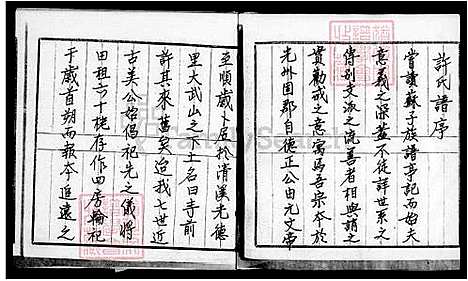 許氏譜序
嘗讀蘇子族譜亭記而始夫
意義之深蓋不徒詳世系之
傳別支派之流善者相與誚之
實勸戒之意寓焉吾宗本於
光州固郡自德正公由元文帝
至順歲卜居於清溪光德
里大武山之下土名曰寺前
許其來舊矣迨我七世近
古美公始倡祀先之儀將
田租六十栳存作四房輪祀
于歲首朔而報本追遠之